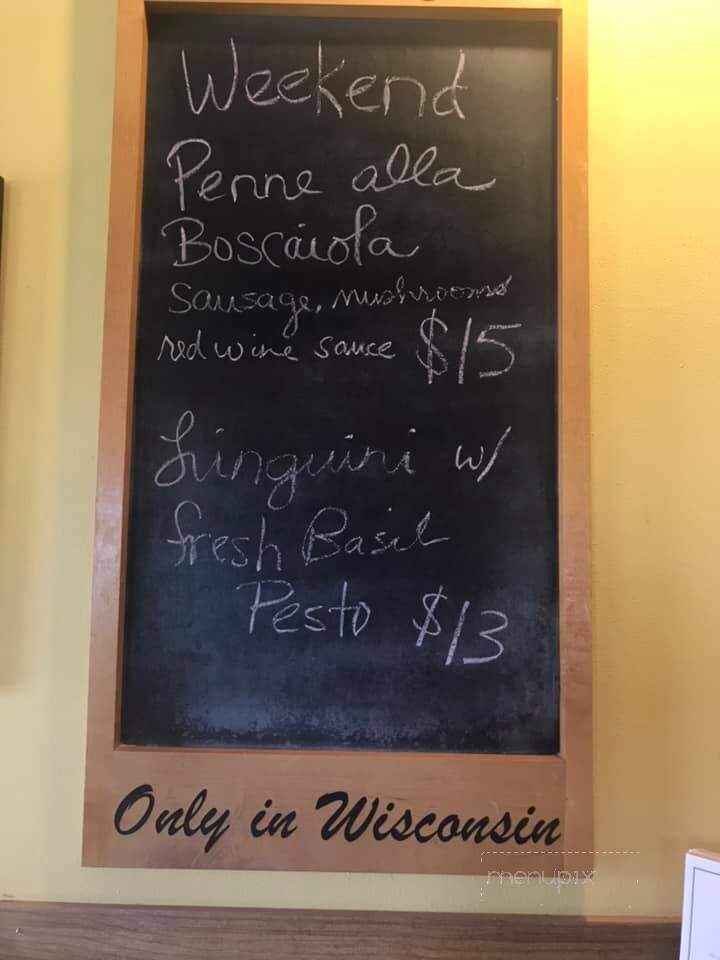 Weekend
Penne alla
Boscaiola
Sausage, mushrooms
red wine sauce $15
Linguini w/
fresh Basil
Pesto $13
Only in Wisconsin
menupix